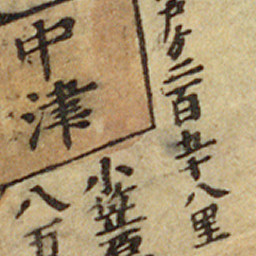 戸ゟ二百五十八里
中津
小笠原
八万